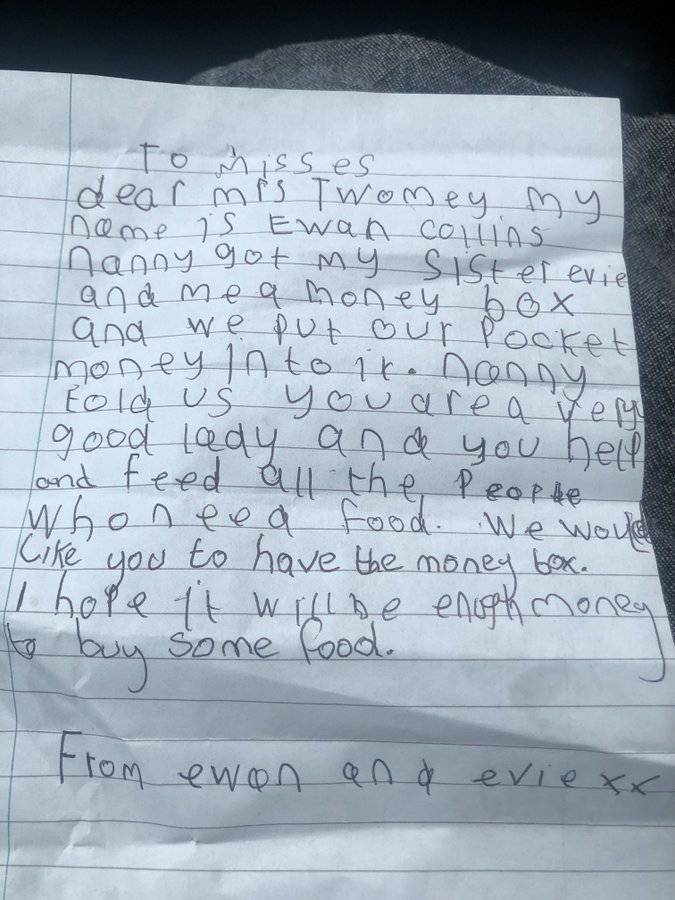 To Misses
dear mrs Twomey my
name is Ewan collins
nanny got my Sister evie
and me a money box
and we put our Pocket
money into it. nanny
told us you are a very
good lady and you help
and feed all the People
who need food. We would
like you to have the money box.
I hope it will be enogh money
to buy some food.
From ewan and evie xx